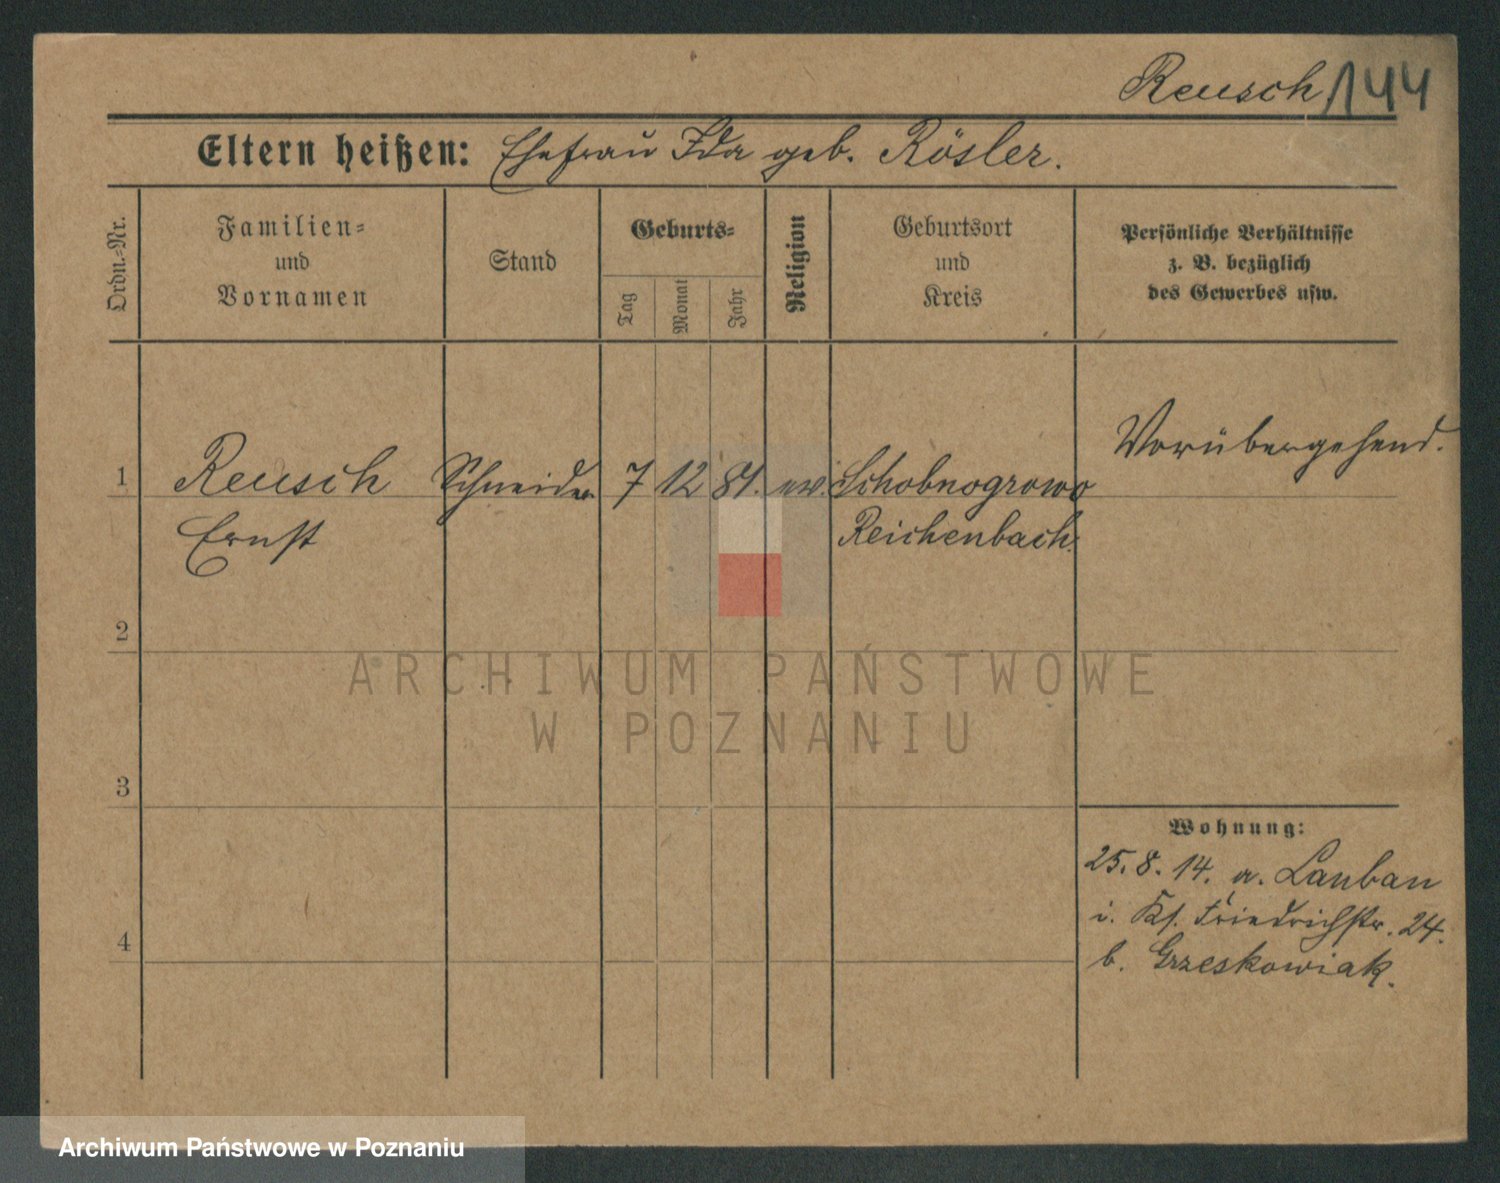 Reusch 144
Eltern heißen: Ehefrau Ida geb. Rösler.
Ordn.-Nr.
Familien-
und
Vornamen
Stand
Geburts-
Tag
Monat
Jahr
Religion
Geburtsort
und
Kreis
Persönliche Verhältnisse
z. B. bezüglich
des Gewerbes usw.
1 Reusch Schneider 7 12 81. ev. Schobnogrowo Vorübergehend.
Ernst Reichenbach.
2
3
4
Wohnung:
25. 8. 14. a. Lauban
i. Friedrichstr. 24.
b. Grzeskowiak.
ARCHIWUM PAŃSTWOWE
W POZNANIU
Archiwum Państwowe w Poznaniu